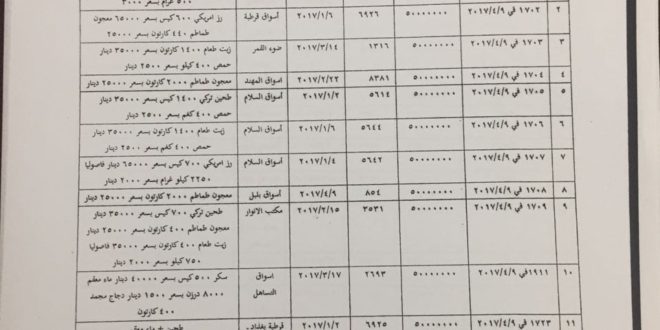 ٥٠٠ غرام بسعر ٣٠٠٠
٢ ١٧٠٢ في ٢٠١٧/٤/٩ ٥٠٠٠٠٠٠٠ ٦٩٢٦ ٢٠١٧/١/٦ أسواق قرطبة رز امريكي ٦٠٠ كيس بسعر ٦٥٠٠٠ معجون
طماطم ٤٤٠ كارتون بسعر ٢٥٠٠٠
٣ ١٧٠٣ في ٢٠١٧/٤/٩ ٥٠٠٠٠٠٠٠ ١٣١٦ ٢٠١٧/٣/١٤ ضوء القمر زيت طعام ١٤٠٠ كارتون بسعر ٣٥٠٠٠ دينار
حمص ٤٠٠ كيلو بسعر ٢٥٠٠ دينار
٤ ١٧٠٤ في ٢٠١٧/٤/٩ ٥٠٠٠٠٠٠٠ ٨٣٨١ ٢٠١٧/٢/٢٢ اسواق المهند معجون طماطم ٢٠٠٠ كارتون بسعر ٢٥٠٠٠ دينار
٥ ١٧٠٥ في ٢٠١٧/٤/٩ ٥٠٠٠٠٠٠٠ ٥٦١٤ ٢٠١٧/١/٢ أسواق السلام طحين تركي ١٤٠٠ كيس بسعر ٣٥٠٠٠ دينار
حمص ٤٠٠ كغم بسعر ٢٥٠٠ دينار
٦ ١٧٠٦ في ٢٠١٧/٤/٩ ٥٠٠٠٠٠٠٠ ٥٦٤٤ ٢٠١٧/١/٦ أسواق السلام زيت طعام ١٤٠٠ كارتون بسعر ٣٥٠٠٠ دينار
حمص ٤٠٠ كغم بسعر ٢٥٠٠ دينار
٧ ١٧٠٧ في ٢٠١٧/٤/٩ ٥٠٠٠٠٠٠٠ ٥٦٤٢ ٢٠١٧/١/٤ أسواق السلام رز امريكي ٧٠٠ كيس بسعر ٦٥٠٠٠ دينار فاصوليا
٢٢٥٠ كيلو غرام بسعر ٢٠٠٠ دينار
٨ ١٧٠٨ في ٢٠١٧/٤/٩ ٥٠٠٠٠٠٠٠ ٨٥٤ ٢٠١٧/٤/٩ أسواق بلبل معجون طماطم ٢٠٠٠ كارتون بسعر ٢٥٠٠٠ دينار
٩ ١٧٠٩ في ٢٠١٧/٤/٩ ٥٠٠٠٠٠٠٠ ٣٥٣١ ٢٠١٧/٢/١٥ مكتب الانوار طحين تركي ٧٠٠ كيس بسعر ٣٥٠٠٠ دينار
معجون طماطم ٤٠٠ كارتون بسعر ٢٥٠٠٠ دينار
زيت طعام ٤٠٠ كارتون بسعر ٣٥٠٠٠ فاصوليا
٧٥٠ كيلو بسعر ٢٠٠٠ دينار
١٠ ١٩١١في ٢٠١٧/٤/٩ ٥٠٠٠٠٠٠٠ ٢٦٩٣ ٢٠١٧/٣/١٧ اسواق التساهل سكر ٥٠٠ كيس بسعر ٤٠٠٠٠ دينار ماء معقم
٨٠٠٠ درزن بسعر ١٥٠٠ دينار دجاج مجمد
٤٠٠ كارتون
١١ ١٧٢٣ في ٢٠١٧/٤/٩ ٥٠٠٠٠٠٠٠ ٦٩٢٥ ٢٠١٧/١/٢ قرطبة